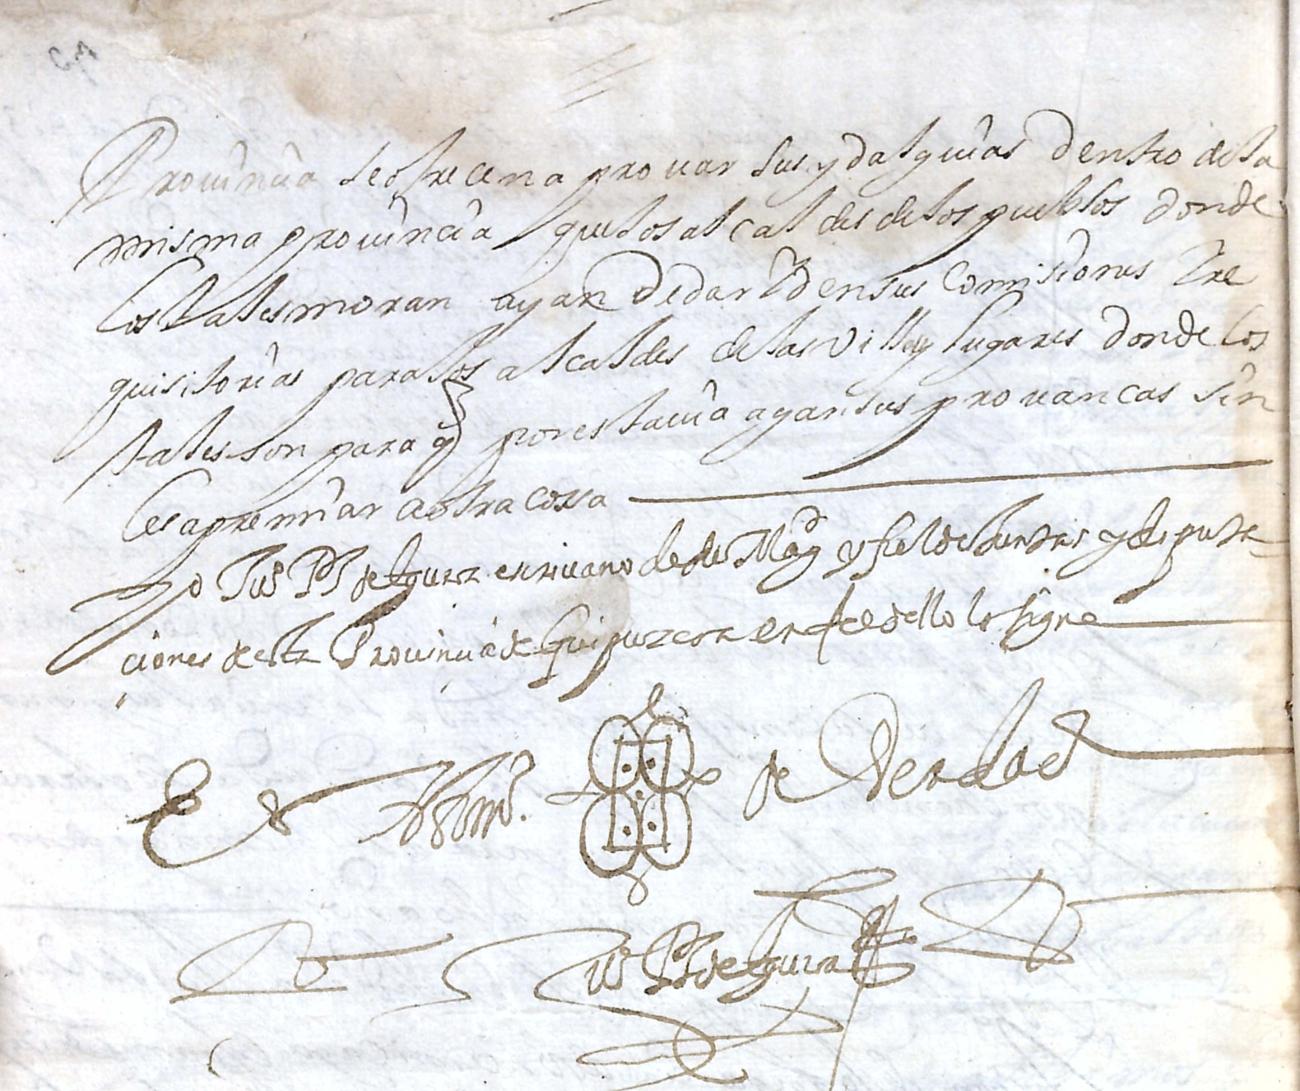 Provinçia se ofrecen a provar sus ydalguias dentro de la
misma provinçia que los alcaldes de los pueblos donde
los tales moran ayan de dar y den sus comisiones y re
quisitorias para los alcaldes de las villas y lugares donde los
tales son para q por esta via agan sus provancas sin
les apremiar a otra cossa
yo Juo Pz de Egurza escrivano de su Magd y fiel de Juntas y diputa
ciones desta Provinçia de Guipuzcoa en fee dello lo signe
En testimo. de Verdad
Juo Pz de Egurza